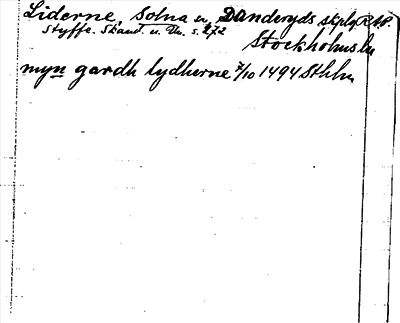 Liderne, Solna o, Danderyds skplg. RAP.
Styffe. Skand. u. Un. s. 272
Stockholms län
myn gardh lydherne 7/10 1494 Sthlm